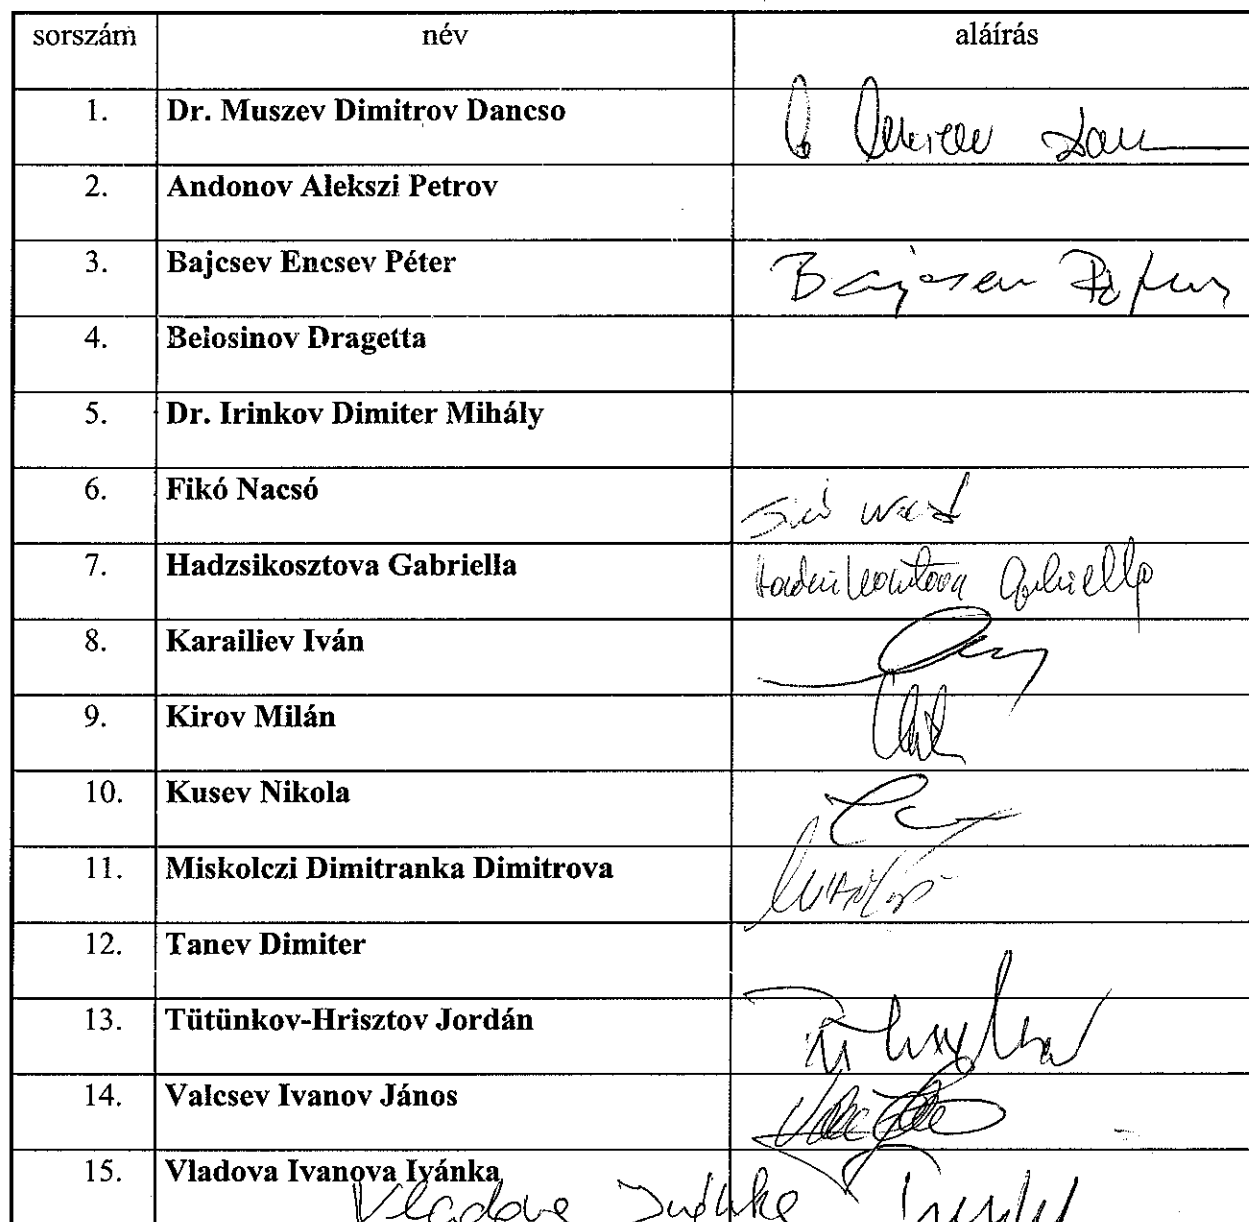 sorszám név aláírás
1. Dr. Muszev Dimitrov Dancso
2. Andonov Alekszi Petrov
3. Bajcsev Encsev Péter Bajcsev Péter
4. Belosinov Dragetta
5. Dr. Irinkov Dimiter Mihály
6. Fikó Nacsó Fikó Nacsó
7. Hadzsikosztova Gabriella Hadzsikosztova Gabriella
8. Karailiev Iván
9. Kirov Milán
10. Kusev Nikola
11. Miskolczi Dimitranka Dimitrova
12. Tanev Dimiter
13. Tütünkov-Hrisztov Jordán
14. Valcsev Ivanov János
15. Vladova Ivanova Ivánka
Vladova Ivánka